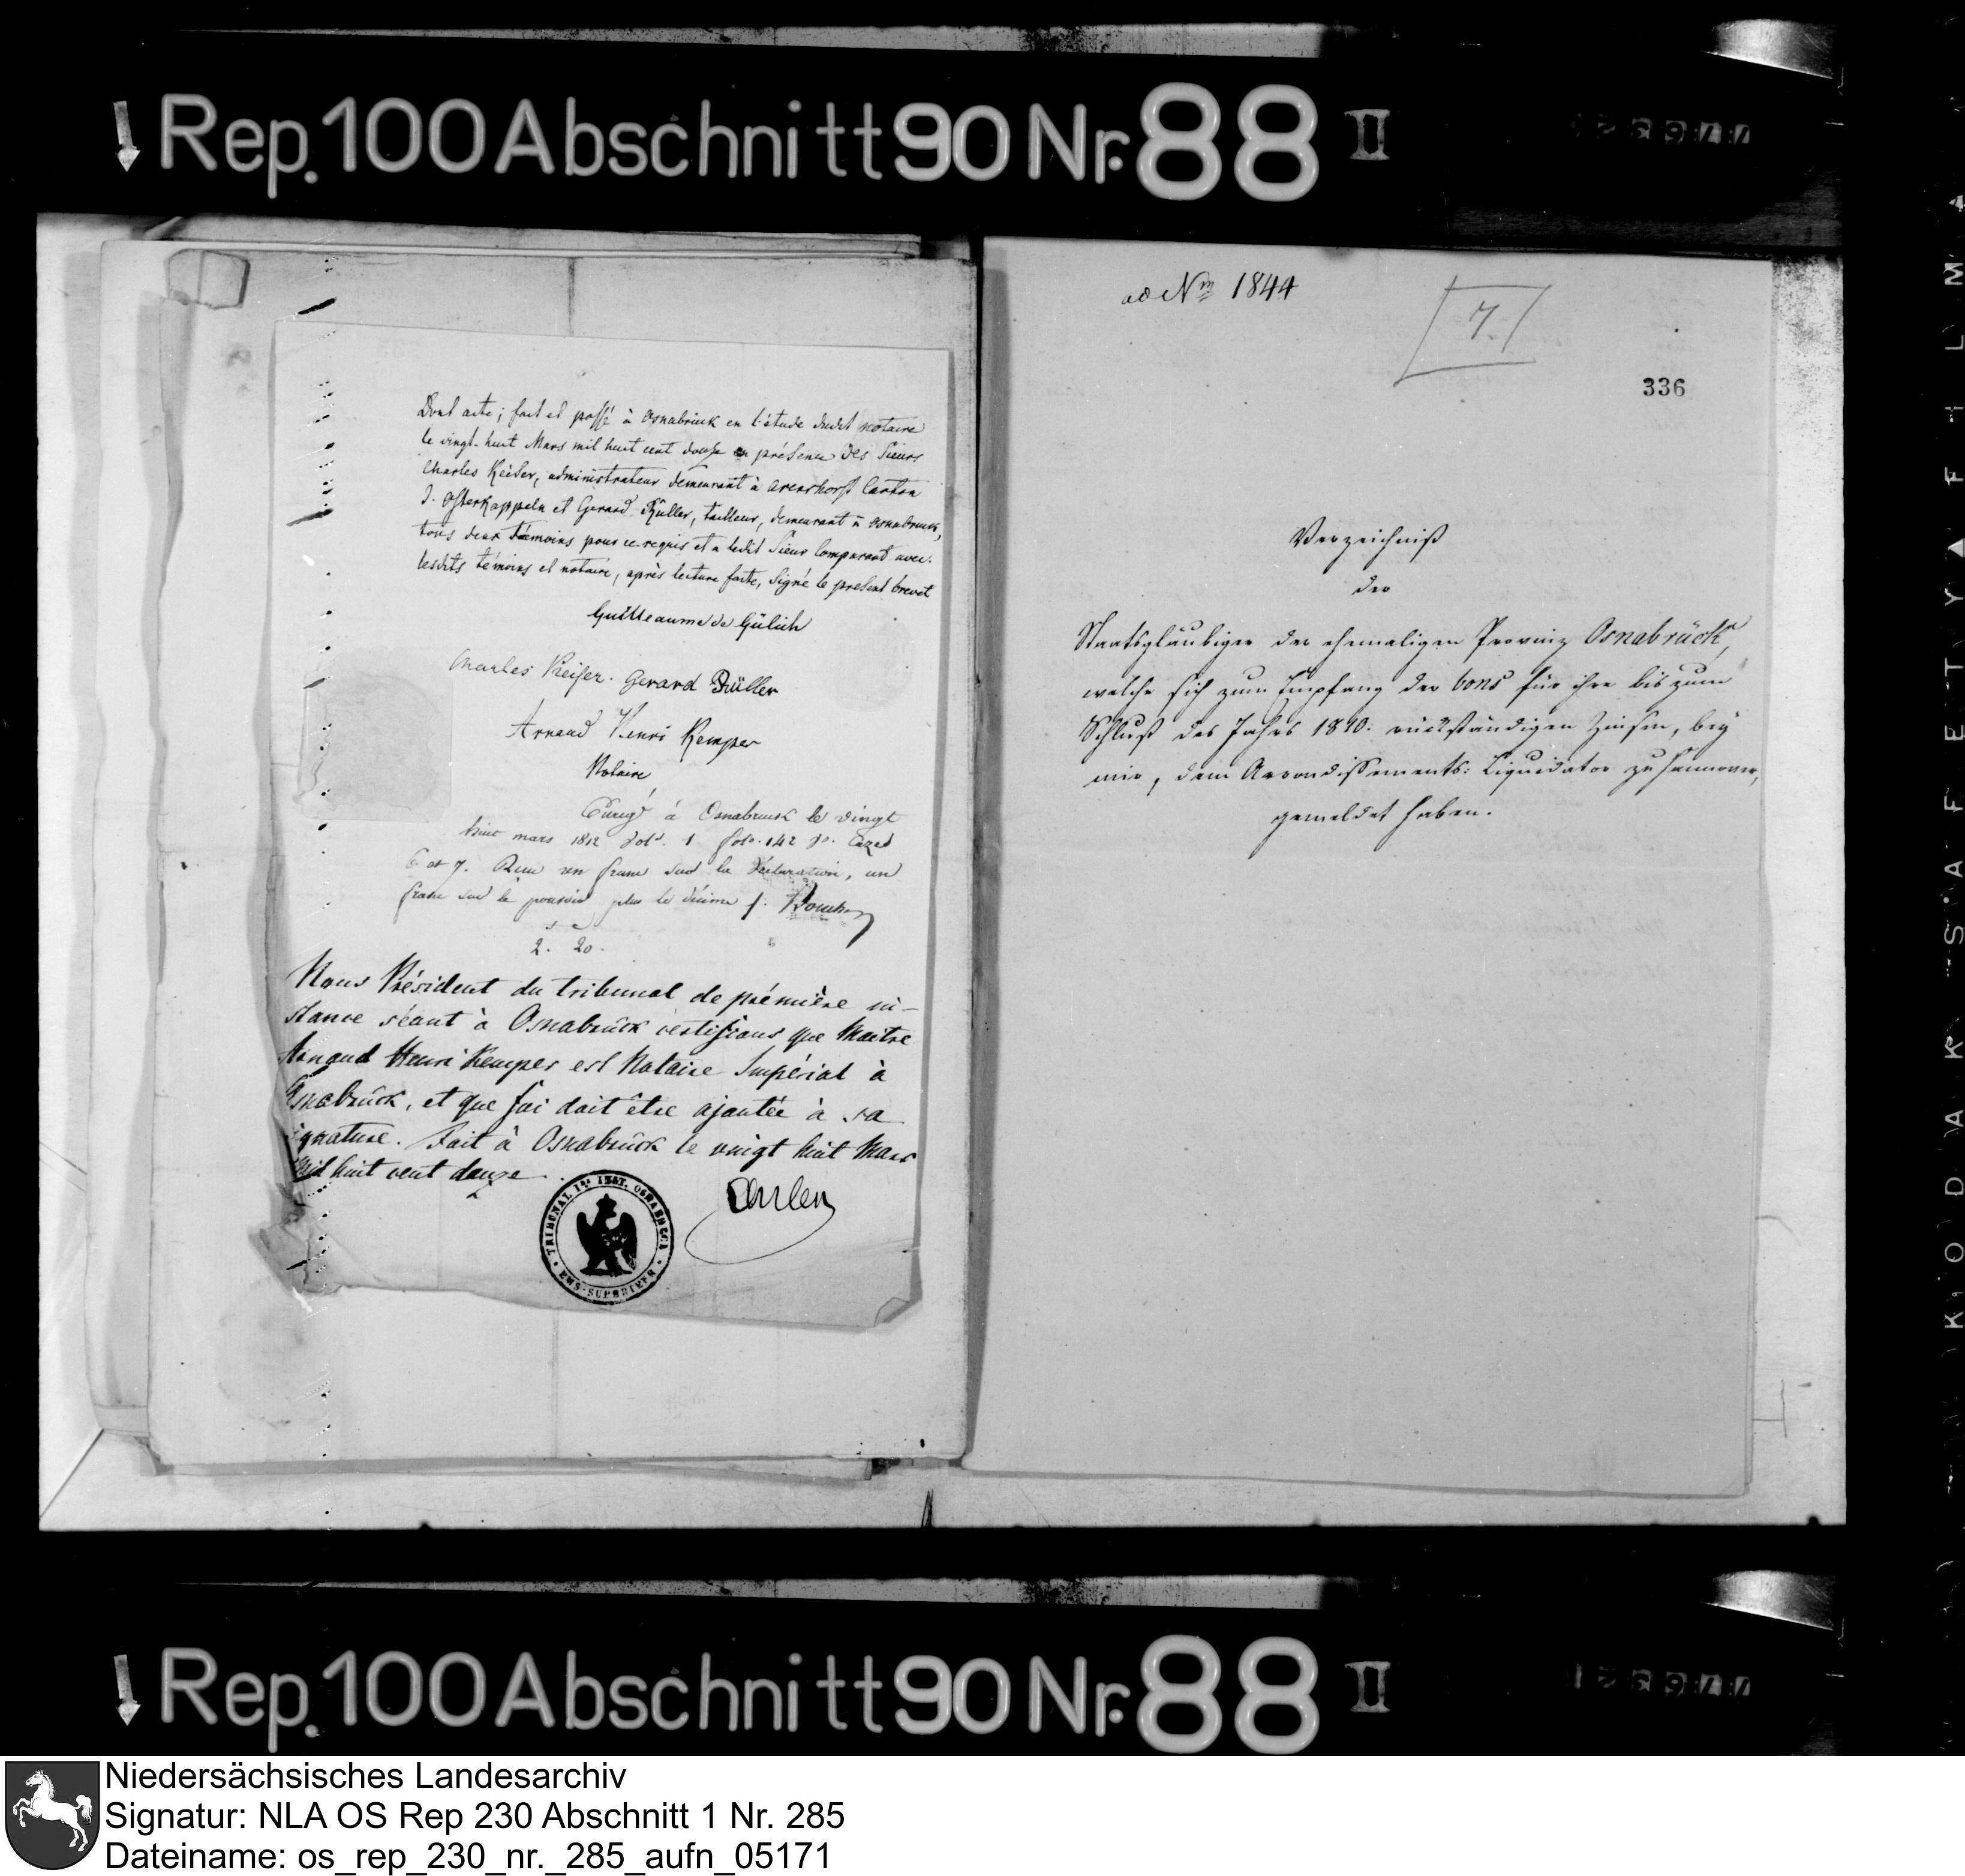 Rep. 100 Abschnitt 90 Nr. 88 II
Dont acte; fait et passé à Osnabrück en l'étude dudit notaire
le vingt-huit Mars mil huit cent douze en présence des Sieurs
Charles Keiser, administrateur demeurant à Arenshorst Canton
d. Osterkappeln et Gerard Rüller, tailleur, demeurant à Osnabruck,
tous deux témoins pour ce requis et a ledit Sieur Comparant avec
lesdits témoins et notaire, après lecture faite, signé le présent brevet
Guilleaume de Gülich
Charles Keiser. Gerard Rüller
Arnaud Henri Kemper
Notaire
à Osnabruck le vingt
huit mars 1812 vol. 1 fol. 142 Cazes
6 et 7. Reçu un franc sur la déclaration, un
franc sur le pouvoir plus le décime f.
2. 20.
Nous Président du tribunal de prémière in-
stance séant à Osnabrück certifions que Maitre
Arnaud Henri Kemper est Notaire Impérial à
Osnabrück, et que foi doit être ajoutée à sa
signature. Fait à Osnabrück le vingt huit Mars
mil huit cent douze
TRIBUNAL 1re INST. OSNABRUCK
EMS-SUPERIEUR
ad Nm 1844
7.
336
Verzeichniß
der
Staatsgläubiger der ehemaligen Provinz Osnabrück,
welche sich zum Empfang der bons für ihre bis zum
Schluß des Jahrs 1810. rückständigen Zinsen, bey
mir, dem Arrondissements: Liquidator zu Hannover,
gemeldet haben.
KODAK SAFETY FILM
Rep. 100 Abschnitt 90 Nr. 88 II
Niedersächsisches Landesarchiv
Signatur: NLA OS Rep 230 Abschnitt 1 Nr. 285
Dateiname: os_rep_230_nr._285_aufn_05171